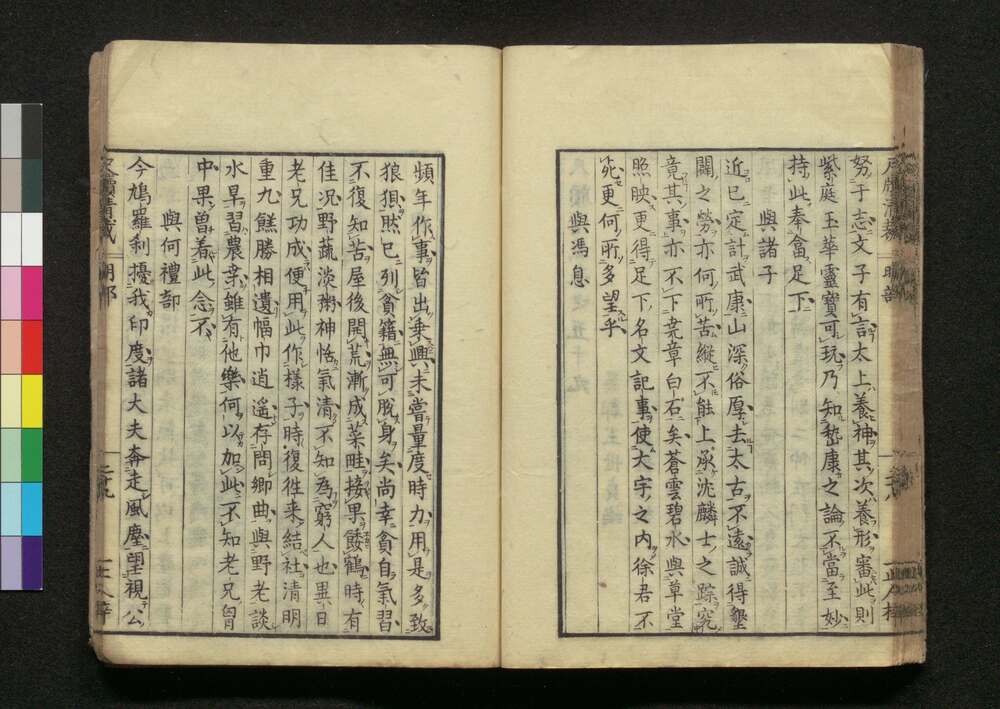 努于志文子有言太上養神其次養形審此則
紫庭玉華靈寶可玩乃知嵇康之論不當至妙
持此奉畣足下
與諸子
近已定計武康山深俗厚去太古不遠誠得墾
闢之勞亦何所苦縱不能上承沈麟士之踪究
竟其事亦不下堯章白石矣蒼雲碧水與草堂
照映更得足下名文記事使大字之內徐君不
死更何所多望乎
與馮息
頻年作事皆出乘興未嘗量度時力用是多致
狼狽然已列貧籍無可脫身矣尚幸貧自氣習
不復知苦屋後開荒漸成菜畦接果餧鶴時有
佳況野蔬淡粥神恬氣清不知為窮人也異日
老兄功成便用此作樣子時復徃来結社清明
重九餻勝相遺幅巾逍遙存問鄉曲與野老談
水旱習農桒雖有他樂何以加此不知老兄胷
中果曾着此念不
與何禮部
今鳩羅利擾我印度諸大夫奔走風塵望視公